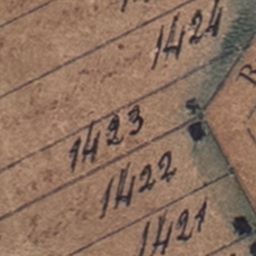 1424
1423
1422
1421